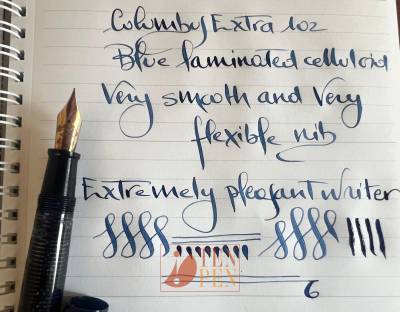 Columbus Extra 102
Blue laminated celluloid
Very smooth and Very
flexible nib
Extremely pleasant writer
TEN
PEN
6